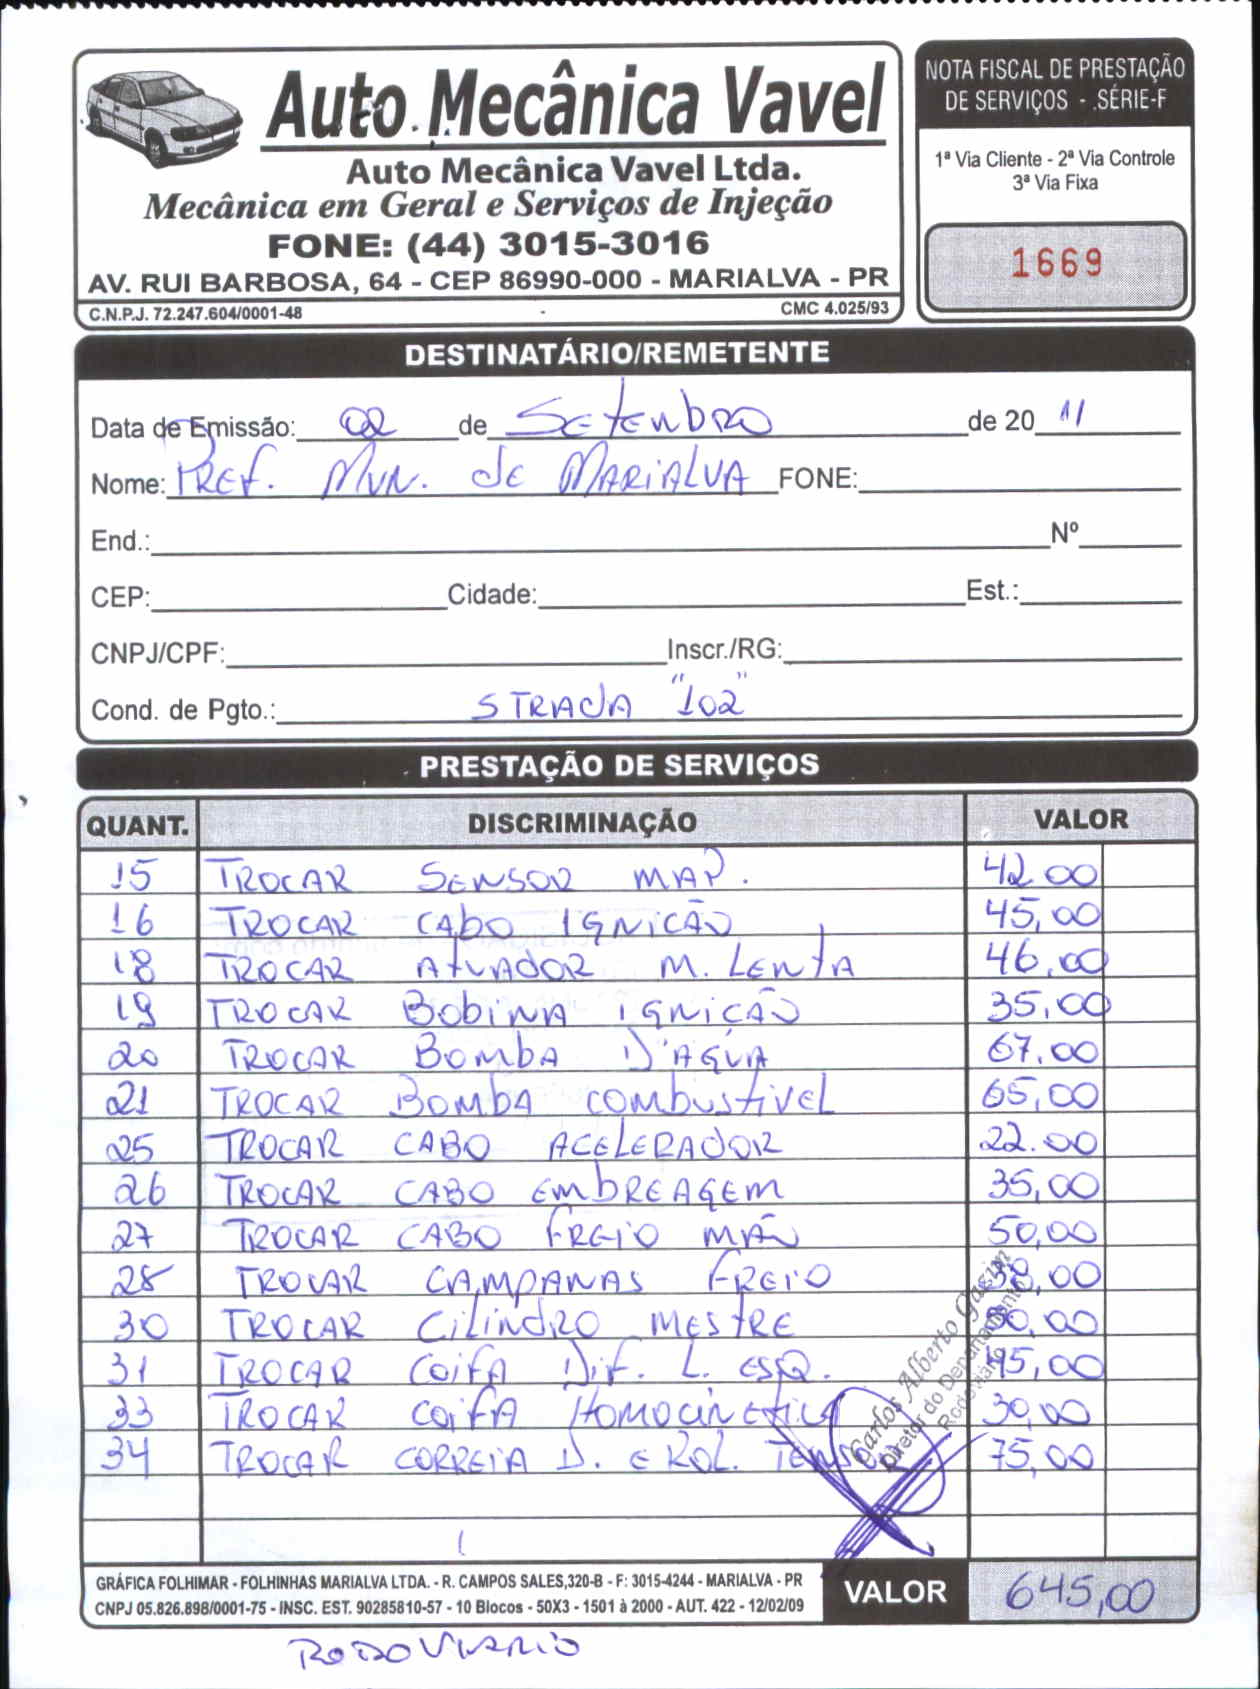 Auto Mecânica Vavel
Auto Mecânica Vavel Ltda.
Mecânica em Geral e Serviços de Injeção
FONE: (44) 3015-3016
AV. RUI BARBOSA, 64 - CEP 86990-000 - MARIALVA - PR
C.N.P.J. 72.247.604/0001-48 CMC 4.025/93
NOTA FISCAL DE PRESTAÇÃO
DE SERVIÇOS - SÉRIE-F
1ª Via Cliente - 2ª Via Controle
3ª Via Fixa
1669
DESTINATÁRIO/REMETENTE
Data de Emissão: 02 de Setembro de 2011
Nome: PREF. MUN. de MARIALVA FONE:
End.: Nº
CEP: Cidade: Est.:
CNPJ/CPF: Inscr./RG:
Cond. de Pgto.: STRADA "102"
PRESTAÇÃO DE SERVIÇOS
QUANT. DISCRIMINAÇÃO VALOR
15 TROCAR SENSOR MAP. 42.00
16 TROCAR CABO IGNICÃO 45,00
18 TROCAR ATUADOR M. LENTA 46,00
19 TROCAR BOBINA IGNICÃO 35,00
20 TROCAR BOMBA D'AGUA 67.00
21 TROCAR BOMBA COMBUSTIVEL 65,00
25 TROCAR CABO ACELERADOR 22.00
26 TROCAR CABO EMBREAGEM 35,00
27 TROCAR CABO FREIO MÃO 50,00
28 TROCAR CAMPANAS FREIO
30 TROCAR CILINDRO MESTRE
31 TROCAR COIFA DIF. L. ESQ. 45,00
33 TROCAR COIFA HOMOCINETICA 30,00
34 TROCAR CORREIA D. E ROL. TENSOR 75,00
Carlos Alberto
Diretor do Departamento
Rodoviário
GRÁFICA FOLHIMAR - FOLHINHAS MARIALVA LTDA. - R. CAMPOS SALES,320-B - F: 3015-4244 - MARIALVA - PR
CNPJ 05.826.898/0001-75 - INSC. EST. 90285810-57 - 10 Blocos - 50X3 - 1501 à 2000 - AUT. 422 - 12/02/09
VALOR 645,00
RODOVIARIO